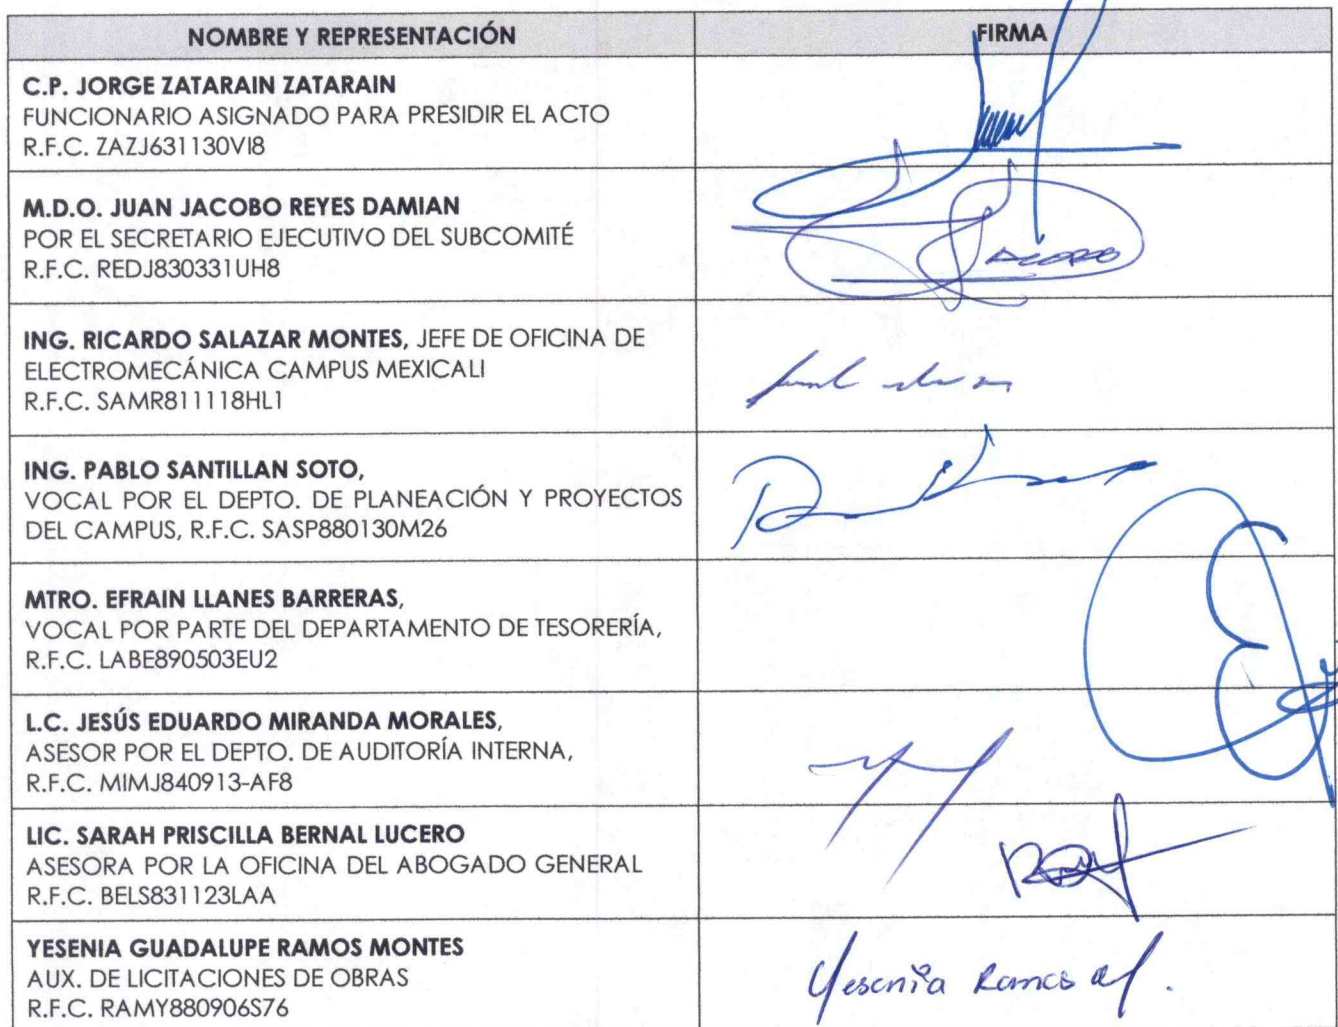 NOMBRE Y REPRESENTACIÓN FIRMA
C.P. JORGE ZATARAIN ZATARAIN
FUNCIONARIO ASIGNADO PARA PRESIDIR EL ACTO
R.F.C. ZAZJ631130VI8
M.D.O. JUAN JACOBO REYES DAMIAN
POR EL SECRETARIO EJECUTIVO DEL SUBCOMITÉ
R.F.C. REDJ830331UH8
ING. RICARDO SALAZAR MONTES, JEFE DE OFICINA DE
ELECTROMECÁNICA CAMPUS MEXICALI
R.F.C. SAMR811118HL1
ING. PABLO SANTILLAN SOTO,
VOCAL POR EL DEPTO. DE PLANEACIÓN Y PROYECTOS
DEL CAMPUS, R.F.C. SASP880130M26
MTRO. EFRAIN LLANES BARRERAS,
VOCAL POR PARTE DEL DEPARTAMENTO DE TESORERÍA,
R.F.C. LABE890503EU2
L.C. JESÚS EDUARDO MIRANDA MORALES,
ASESOR POR EL DEPTO. DE AUDITORÍA INTERNA,
R.F.C. MIMJ840913-AF8
LIC. SARAH PRISCILLA BERNAL LUCERO
ASESORA POR LA OFICINA DEL ABOGADO GENERAL
R.F.C. BELS831123LAA
YESENIA GUADALUPE RAMOS MONTES
AUX. DE LICITACIONES DE OBRAS
R.F.C. RAMY880906S76
Yesenia Ramos